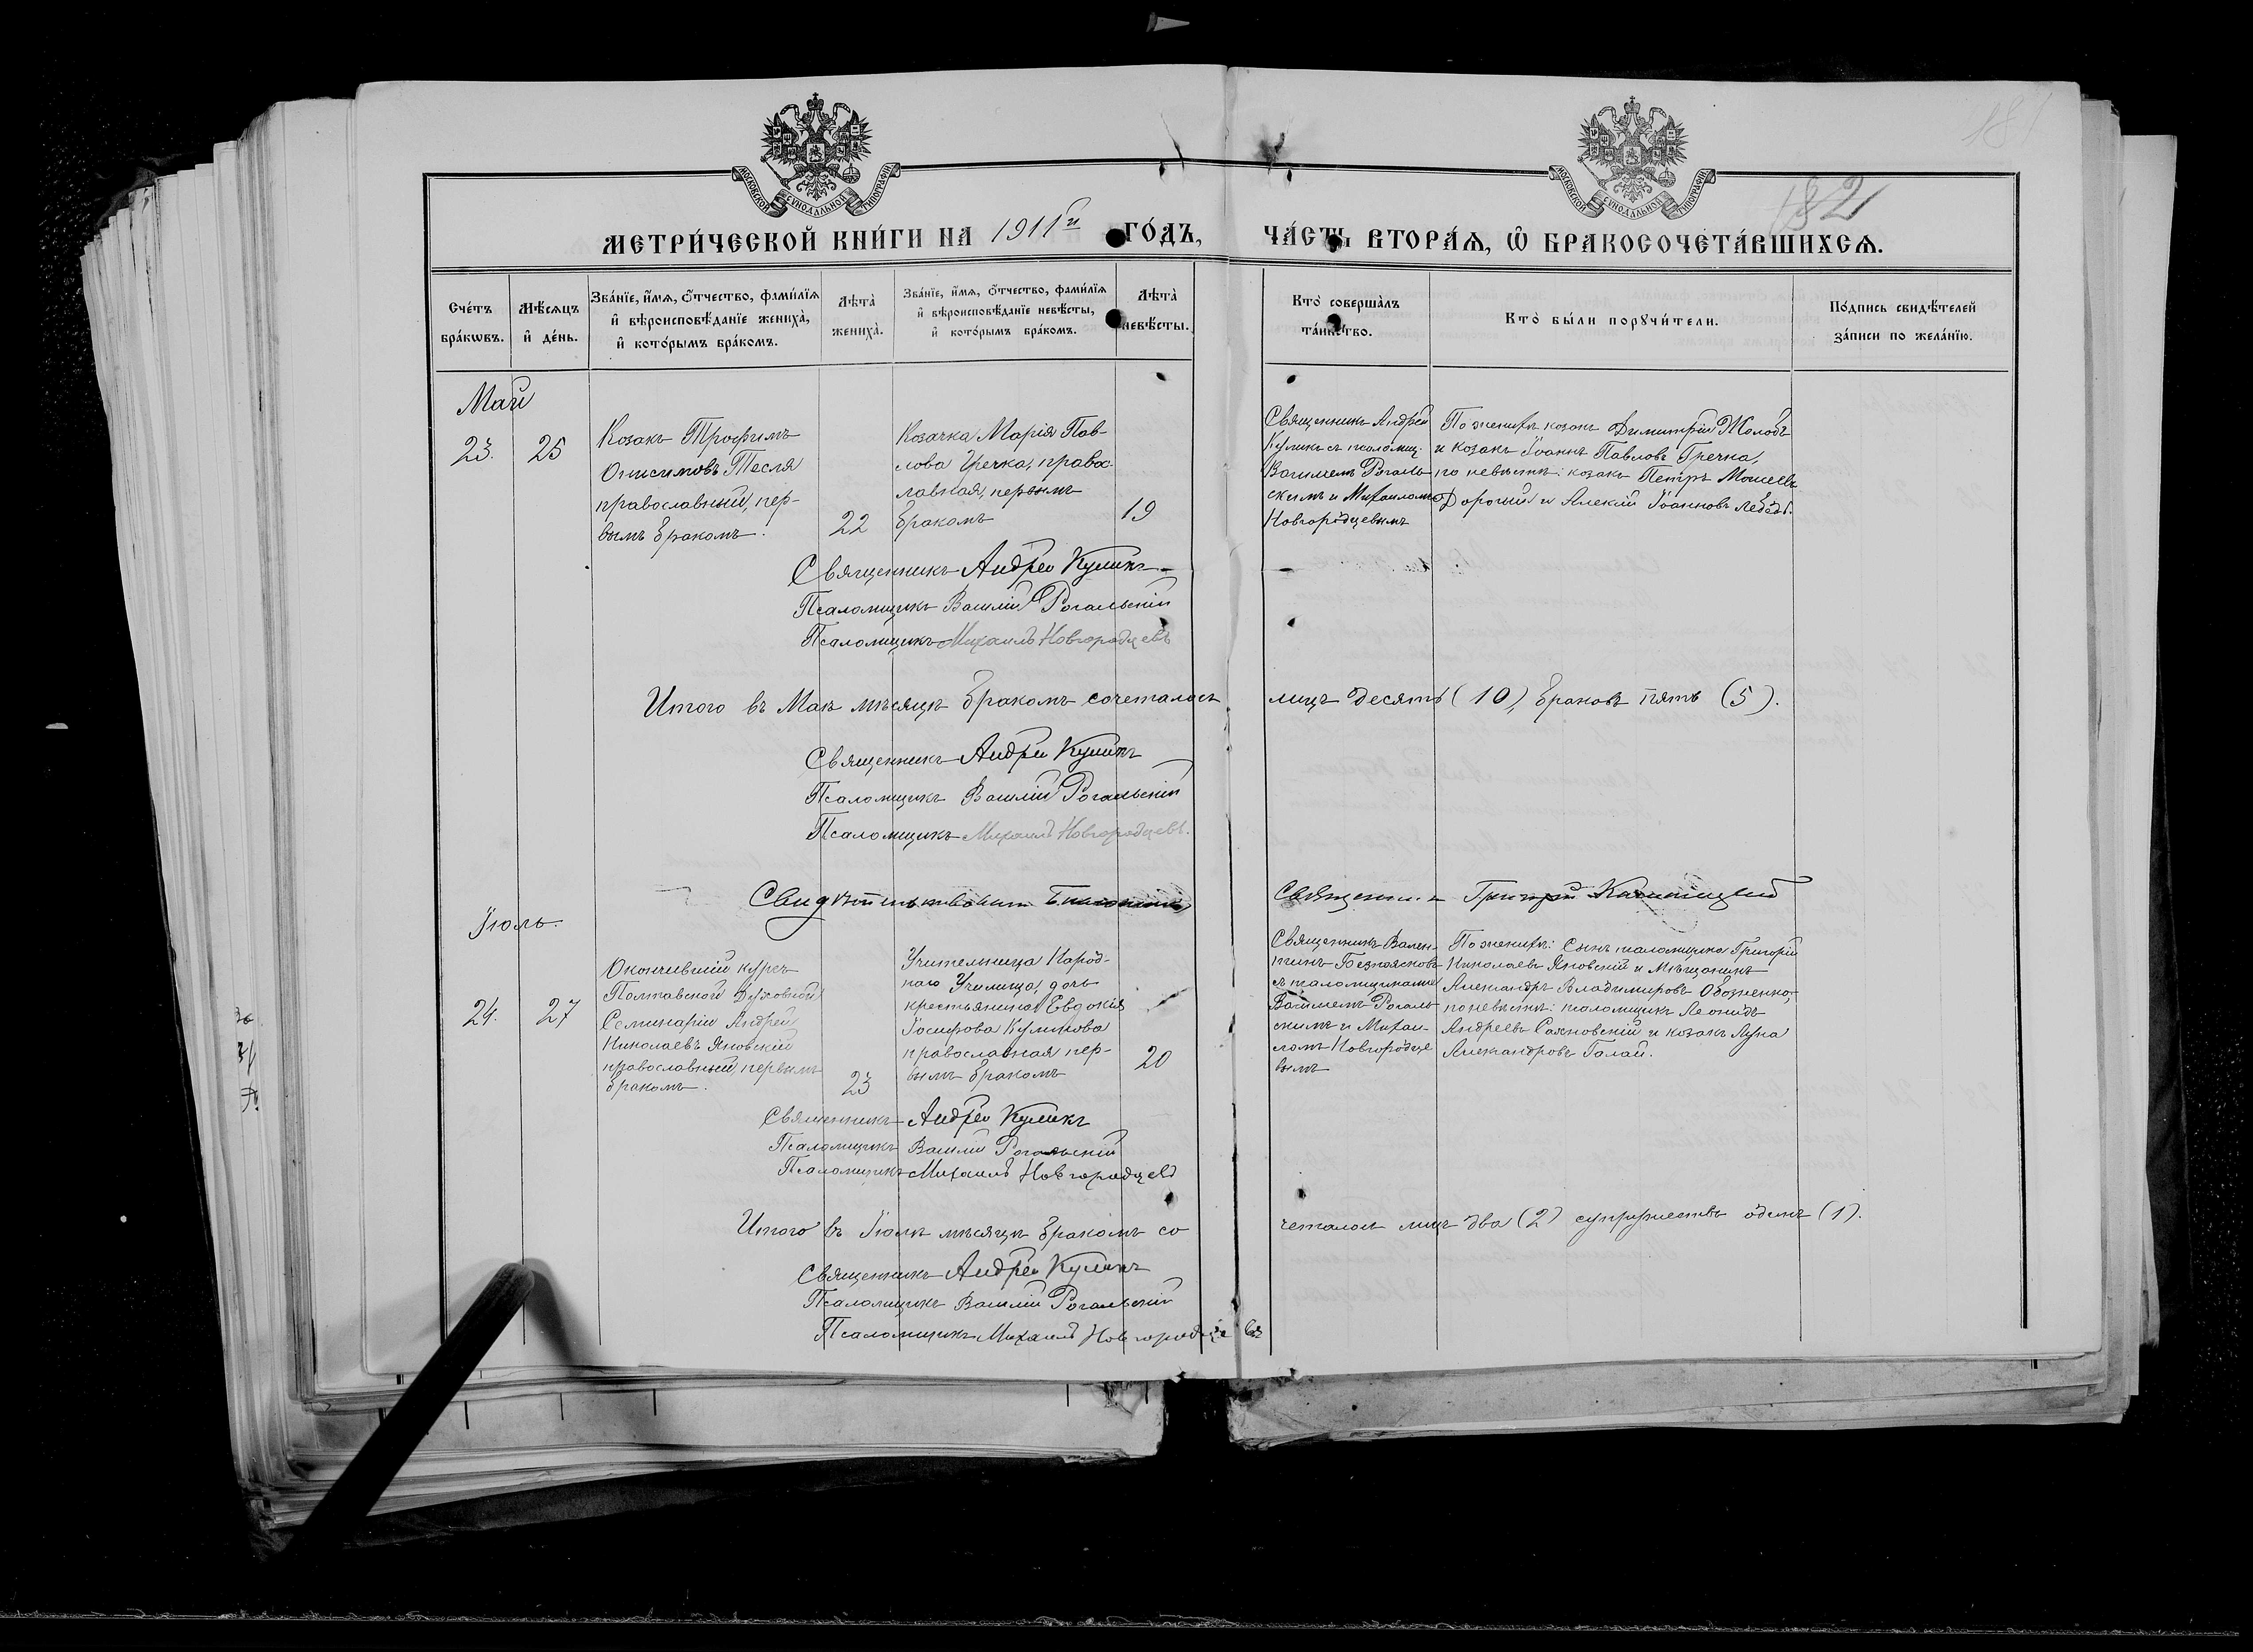 МОСКОВСКОЙ СѴНОДАЛЬНОЙ ТИПОГРАФІИ
МОСКОВСКОЙ СѴНОДАЛЬНОЙ ТИПОГРАФІИ
182
МЕТРИ́ЧЕСКОЙ КНИ́ГИ НА 1911й ГО́ДЪ, ЧА́СТЬ ВТОРА́Ѧ, Ѽ БРАКОСОЧЕТА́ВШИХСѦ.
Сче́тъ бра́кѡвъ.
Мѣ́сѧцъ и҆ де́нь.
Зва́нїе, и҆́мѧ, ѻ҆́тчество, фами́лїѧ и҆ вѣроисповѣ́данїе жениха̀, и҆ кото́рымъ бра́комъ.
Лѣта̀ жениха̀.
Зва́нїе, и҆́мѧ, ѻ҆́тчество, фами́лїѧ и҆ вѣроисповѣ́данїе невѣ́сты, и҆ кото́рымъ бра́комъ.
Лѣта̀ невѣ́сты.
Кто̀ соверша́лъ та́инство.
Кто̀ бы́ли порꙋчи́тели.
По́дпись свидѣ́телей за́писи по жела́нїю.
Май
23.
25
Козакъ Трофимъ
Онисимовъ Тесля
православный, пер-
вымъ бракомъ.
22
Козачка Марія Пав-
лова Гречка, правос-
лавная, первымъ
бракомъ
19
Священникъ Андрей
Куликъ съ псаломщ.
Василіемъ Рогаль-
скимъ и Михаиломъ
Новгородцевымъ
По женихѣ козакъ Димитрій Молодъ
и козакъ Іоаннъ Павловъ Гречка,
по невѣстѣ: козакъ Петръ Моисеевъ
Дорошій и Алексій Іоанновъ Лебедь.
Священникъ Андрей Куликъ
Псаломщикъ Василій Рогальскій
Псаломщикъ Михаилъ Новгородцевъ
Итого въ Маѣ мѣсяцѣ бракомъ сочеталось лицъ десять (10), браковъ пять (5).
Священникъ Андрей Куликъ
Псаломщикъ Василій Рогальскій
Псаломщикъ Михаилъ Новгородцевъ.
Священникъ Григорій
Іюль.
24.
27
Окончившій курсъ
Полтавской Духовной
Семинаріи Андрей
Николаевъ Яновскій
православный, первымъ
бракомъ.
23
Учительница Народ-
наго Училища, дочь
крестьянина Евдокія
Іосифова Куликова
православная пер-
вымъ бракомъ
20
Священникъ Вален-
тинъ Безпоясковъ
съ псаломщиками
Василіемъ Рогаль-
скимъ и Михаи-
ломъ Новгородце
вымъ
По женихѣ: Сынъ псаломщика Григорій
Николаевъ Яновскій и Мѣщанинъ
Александръ Владимировъ Обозненко,
по невѣстѣ: псаломщикъ Леонидъ
Андреевъ Саяновскій и козакъ Лука
Александровъ Галай.
Священникъ Андрей Куликъ
Псаломщикъ Василій Рогальскій
Псаломщикъ Михаилъ Новгородцевъ
Итого въ Іюлѣ мѣсяцѣ бракомъ со четалось лицъ два (2) супружествъ одинъ (1).
Священникъ Андрей Куликъ
Псаломщикъ Василій Рогальскій
Псаломщикъ Михаилъ Новгородцевъ